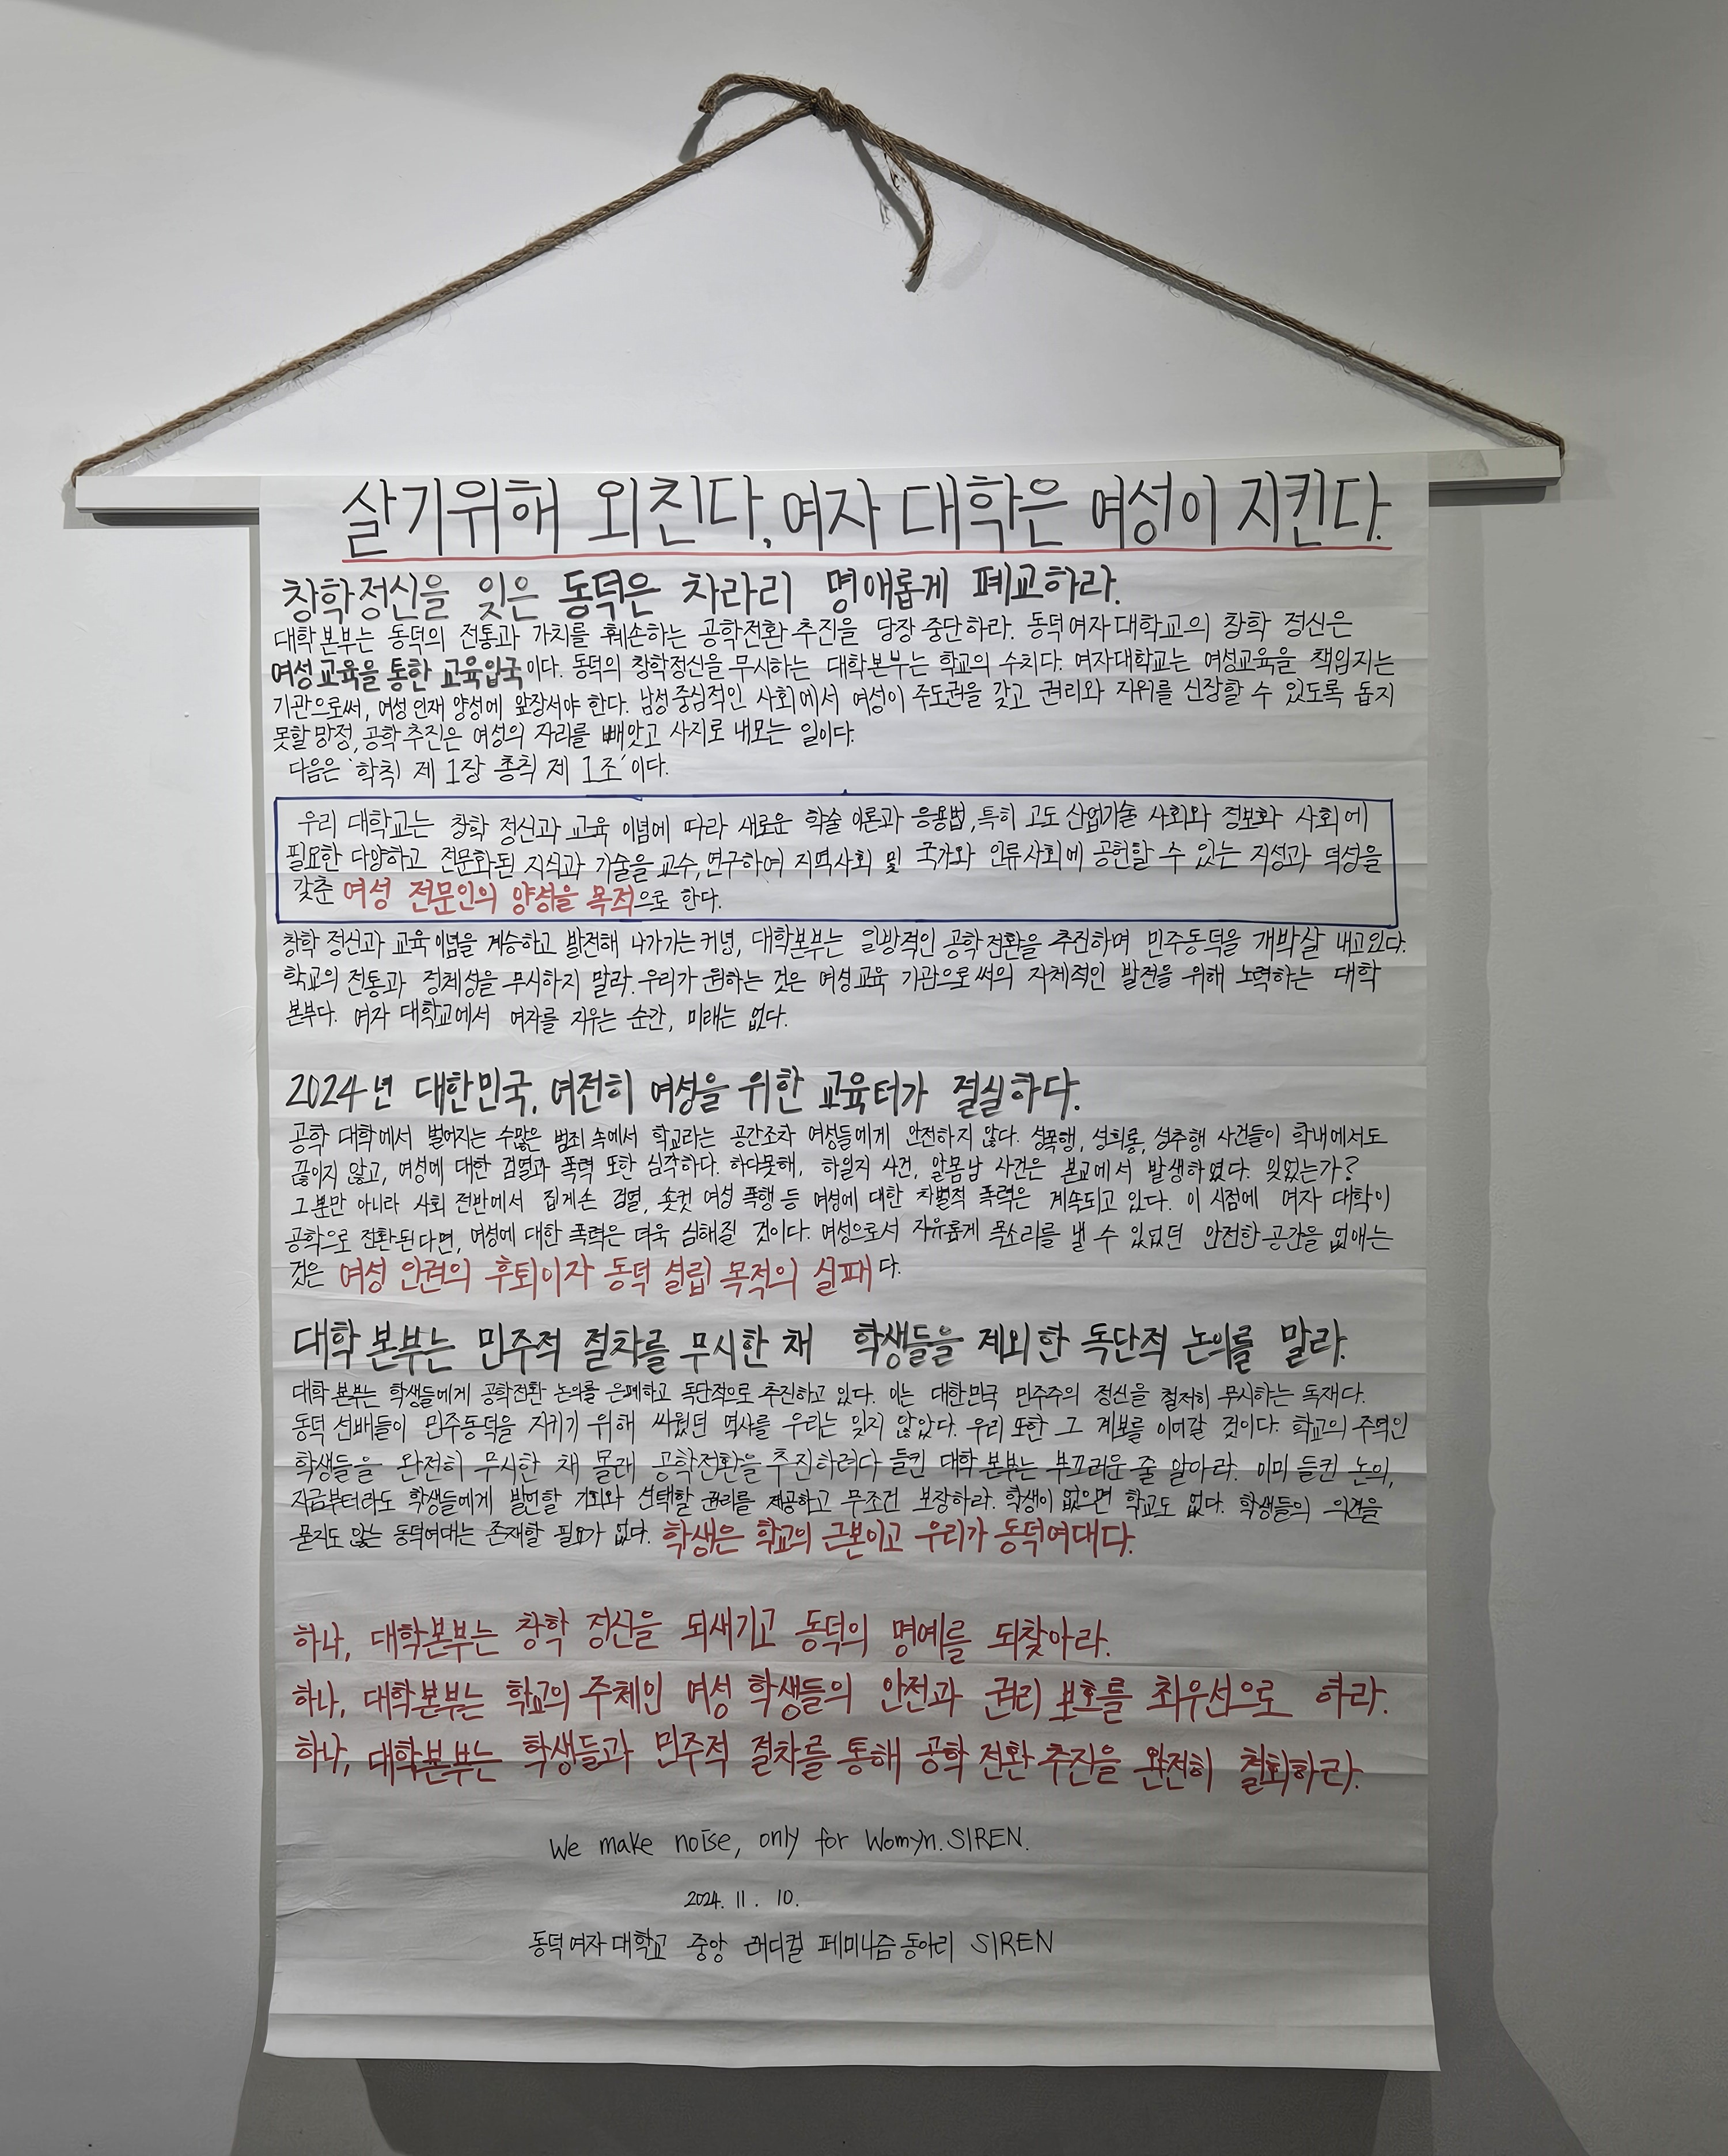 살기위해 외친다, 여자 대학은 여성이 지킨다.
창학정신을 잊은 동덕은 차라리 명애롭게 폐교하라.
대학본부는 동덕의 전통과 가치를 훼손하는 공학전환 추진을 당장 중단하라. 동덕여자대학교의 창학 정신은
여성교육을 통한 교육입국이다. 동덕의 창학정신을 무시하는 대학본부는 학교의 수치다. 여자대학교는 여성교육을 책임지는
기관으로써, 여성 인재 양성에 앞장서야 한다. 남성중심적인 사회에서 여성이 주도권을 갖고 권리와 지위를 신장할 수 있도록 돕지
못할 망정, 공학 추진은 여성의 자리를 빼앗고 사지로 내모는 일이다.
다음은 '학칙 제 1장 총칙 제 1조'이다.
우리 대학교는 창학 정신과 교육 이념에 따라 새로운 학술 이론과 응용법, 특히 고도 산업기술 사회와 정보화 사회에
필요한 다양하고 전문화된 지식과 기술을 교수, 연구하여 지역사회 및 국가와 인류사회에 공헌할 수 있는 지성과 덕성을
갖춘 여성 전문인의 양성을 목적으로 한다.
창학 정신과 교육이념을 계승하고 발전해 나가기는커녕, 대학본부는 일방적인 공학전환을 추진하며 민주동덕을 개박살 내고있다.
학교의 전통과 정체성을 무시하지 말라. 우리가 원하는 것은 여성교육 기관으로써의 자체적인 발전을 위해 노력하는 대학
본부다. 여자 대학교에서 여자를 지우는 순간, 미래는 없다.
2024년 대한민국, 여전히 여성을 위한 교육터가 절실하다.
공학 대학에서 벌어지는 수많은 범죄 속에서 학교라는 공간조차 여성들에게 안전하지 않다. 성폭행, 성희롱, 성추행 사건들이 학내에서도
끊이지 않고, 여성에 대한 검열과 폭력 또한 심각하다. 하다못해, 하일지 사건, 알몸남 사건은 본교에서 발생하였다. 잊었는가?
그뿐만 아니라 사회 전반에서 집게손 검열, 숏컷 여성 폭행 등 여성에 대한 차별적 폭력은 계속되고 있다. 이 시점에 여자 대학이
공학으로 전환된다면, 여성에 대한 폭력은 더욱 심해질 것이다. 여성으로서 자유롭게 목소리를 낼 수 있었던 안전한 공간을 없애는
것은 여성 인권의 후퇴이자 동덕 설립 목적의 실패다.
대학본부는 민주적 절차를 무시한 채 학생들을 제외한 독단적 논의를 말라.
대학본부는 학생들에게 공학전환 논의를 은폐하고 독단적으로 추진하고 있다. 이는 대한민국 민주주의 정신을 철저히 무시하는 독재다.
동덕 선배들이 민주동덕을 지키기 위해 싸웠던 역사를 우리는 잊지 않았다. 우리 또한 그 계보를 이어갈 것이다. 학교의 주역인
학생들을 완전히 무시한 채 몰래 공학전환을 추진하려다 들킨 대학 본부는 부끄러운 줄 알아라. 이미 들킨 논의,
지금부터라도 학생들에게 발언할 기회와 선택할 권리를 제공하고 무조건 보장하라. 학생이 없으면 학교도 없다. 학생들의 의견을
묻지도 않는 동덕여대는 존재할 필요가 없다. 학생은 학교의 근본이고 우리가 동덕여대다.
하나, 대학본부는 창학 정신을 되새기고 동덕의 명예를 되찾아라.
하나, 대학본부는 학교의 주체인 여성 학생들의 안전과 권리 보호를 최우선으로 하라.
하나, 대학본부는 학생들과 민주적 절차를 통해 공학 전환 추진을 완전히 철회하라.
We make noise, only for Womyn. SIREN.
2024. 11. 10.
동덕여자대학교 중앙 래디컬 페미니즘 동아리 SIREN